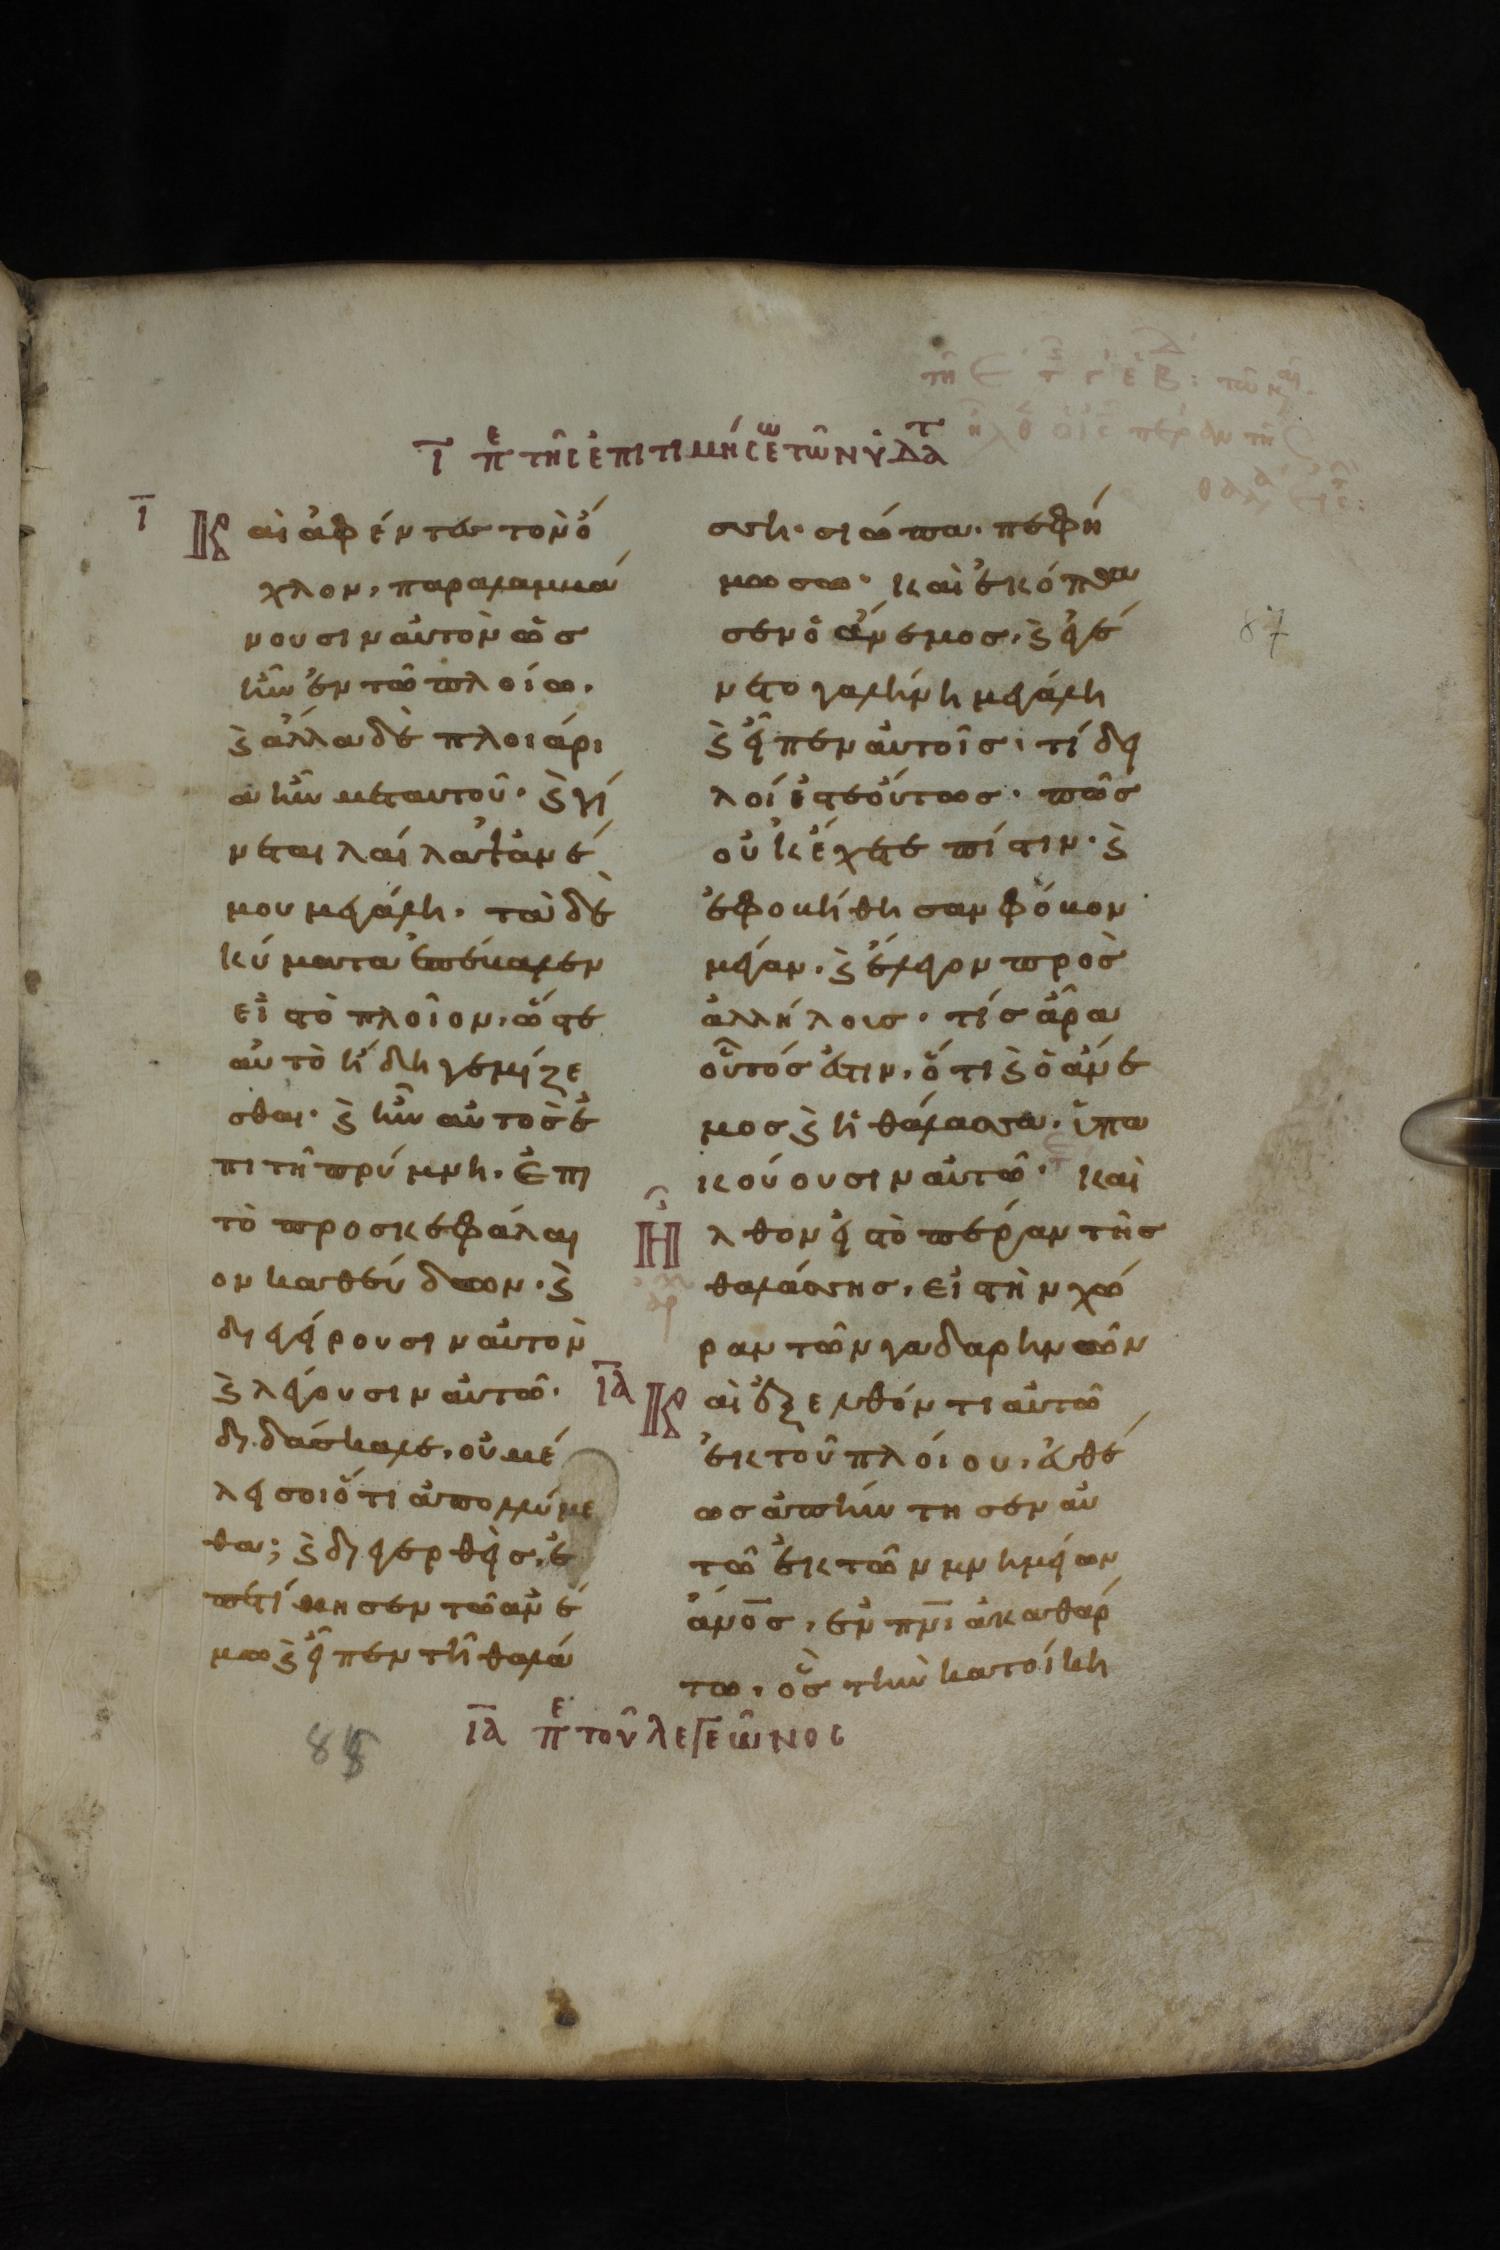 ι πε τῆς ἐπιτιμήσεω τῶν ὑδατ
ι
Καὶ ἀφέντες τὸν ὄ
χλον, παραλαμβά
νουσιν αὐτὸν ὡς
ἦν ἐν τῶ πλοίω.
ϗ ἄλλα δὲ πλοιάρι
α ἦν μεταυτοῦ· ϗ γί
νεται λαίλαψ ἀνέ
μου μεγάλη· τὰ δὲ
κύματα ἐπέβαλεν
εἰς τὸ πλοῖον, ὥστε
αὐτὸ ἤδη γεμίζε
σθαι· ϗ ἦν αὐτὸς ἐ
πι τῆ πρύμνη. ἐπι
τὸ προσκεφάλαι
ον καθεύδων· ϗ
διεγείρουσιν αὐτὸν
ϗ λέγουσιν αὐτῶ·
διδάσκαλε, οὐ μέ
λει σοι ὅτι ἀπολλύμε
θα; ϗ διεγερθεὶς, ἐ
πετίμησεν τῶ ἀνέ
μω ϗ εἶπεν τῆ θαλά
σση· σιώπα· πεφί
μωσω· καὶ ἐκόπα
σεν ὁ ἄνεμος, ϗ ἐγέ
νετο γαλήνη μεγάλη
ϗ εἶπεν αὐτοῖς· τί δει
λοί ἐστε οὕτως· πῶς
οὐκ ἔχετε πίστιν· ϗ
ἐφοβήθησαν φόβον
μέγαν, ϗ ἔλεγον πρὸς
ἀλλήλους· τίς ἄρα
οὗτός ἐστιν, ὅτι ϗ ὁ ἄνε
μος ϗ ἡ θάλασσα, ὑπα
κούουσιν αὐτῶ· Καὶ
Ἦλθον εἰς τὸ πέραν τῆς
θαλάσσης, εἰς τὴν χώ
ραν τῶν γαδαρηνῶν
ια
Καὶ ἐξελθόντι αὐτῶ
ἐκ τοῦ πλοίου, ἐυθέ
ως ἀπήντησεν αὐ
τῶ ἐκ τῶν μνημείων
ἄνος, ἐν πνι ἀκαθάρ
τω, ὃς τὴν κατοίκη
ια πε τοῦ λεγεῶνος
87